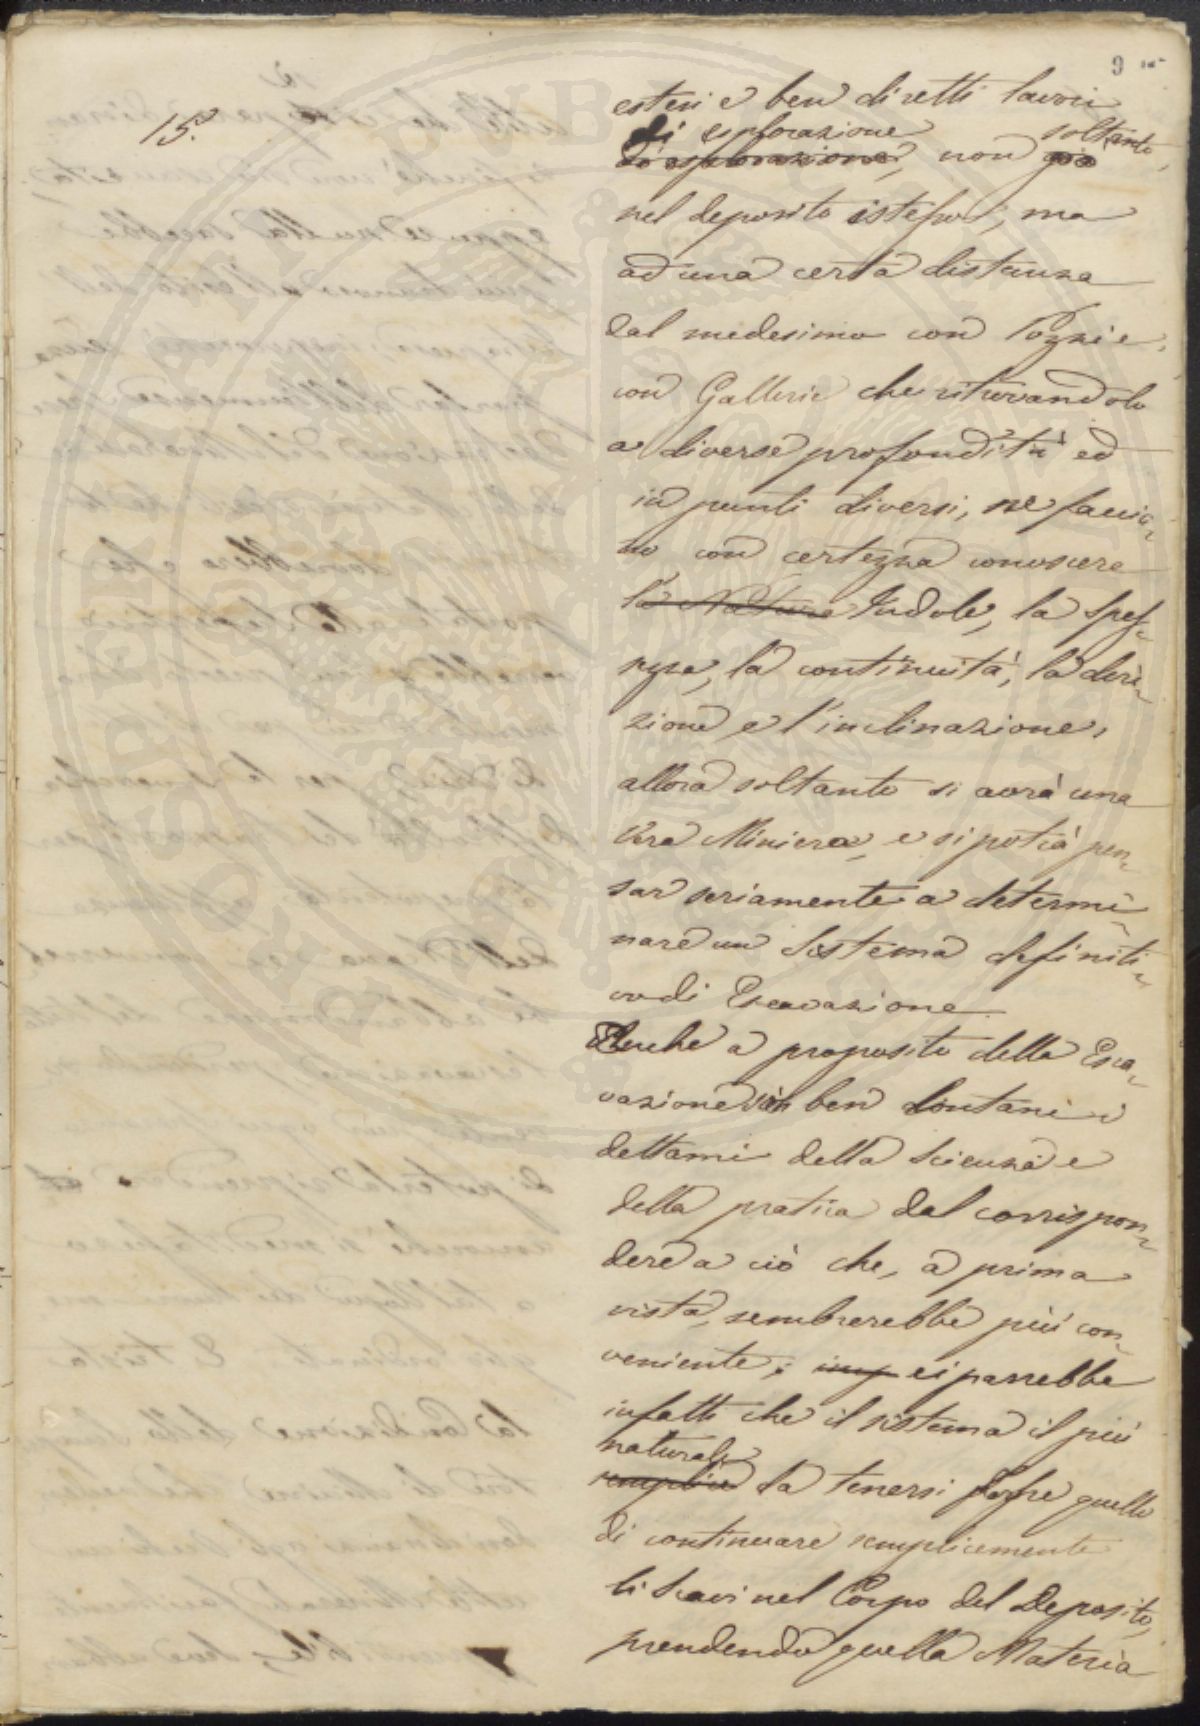 9
15.
estesi e ben diretti lavori
di esplorazione soltanto,
di esplorazione, non già
nel deposito istesso, ma
ad una certa distanza
dal medesimo con Pozzi e,
con Gallerie che ritrovandolo
a diverse profondità ed
in punti diversi, ne faccia-
no con certezza conoscere
la Natura Indole, la Spes-
sezza, la continuità, la dire-
zione e l'inclinazione,
allora soltanto si avrà una
vera Miniera, e si potrà pen-
sar seriamente a determi-
nare un Sistema definiti-
vo di Escavazione.
Anche a proposito della Esca-
vazione son ben lontani i
dettami della Scienza e
della pratica dal corrispon-
dere a ciò che, a prima
vista, sembrerebbe più con-
veniente; imp ei parrebbe
infatti che il sistema il più
naturale
semplice da tenersi fosse quello
di continuare semplicemente
li Scavi nel Corpo del Deposito,
prendendo quella Materia